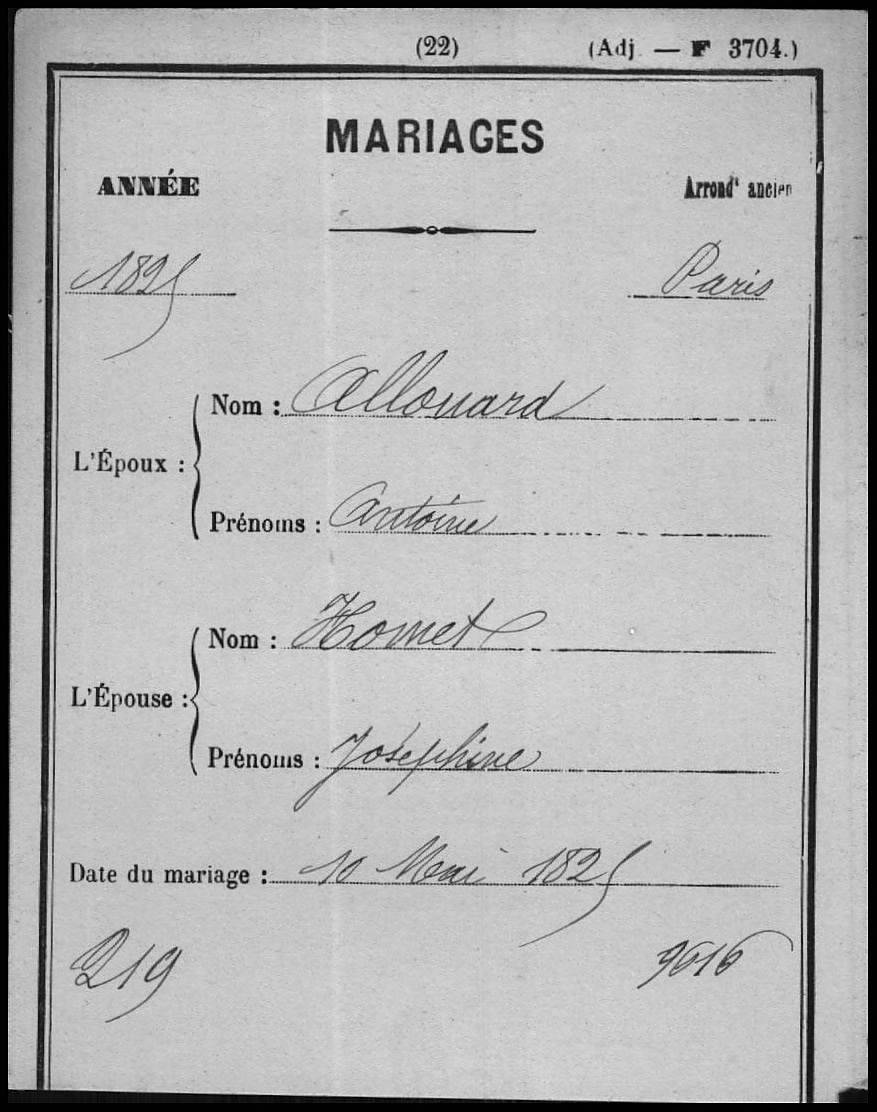 (22) (Adj. — F 3704.)
MARIAGES
ANNÉE Arrondt ancien
1825 Paris
Nom : Allouard
L'Époux :
Prénoms : Antoine
Nom : Homet
L'Épouse :
Prénoms : Joséphine
Date du mariage : 10 Mai 1825
219 9616